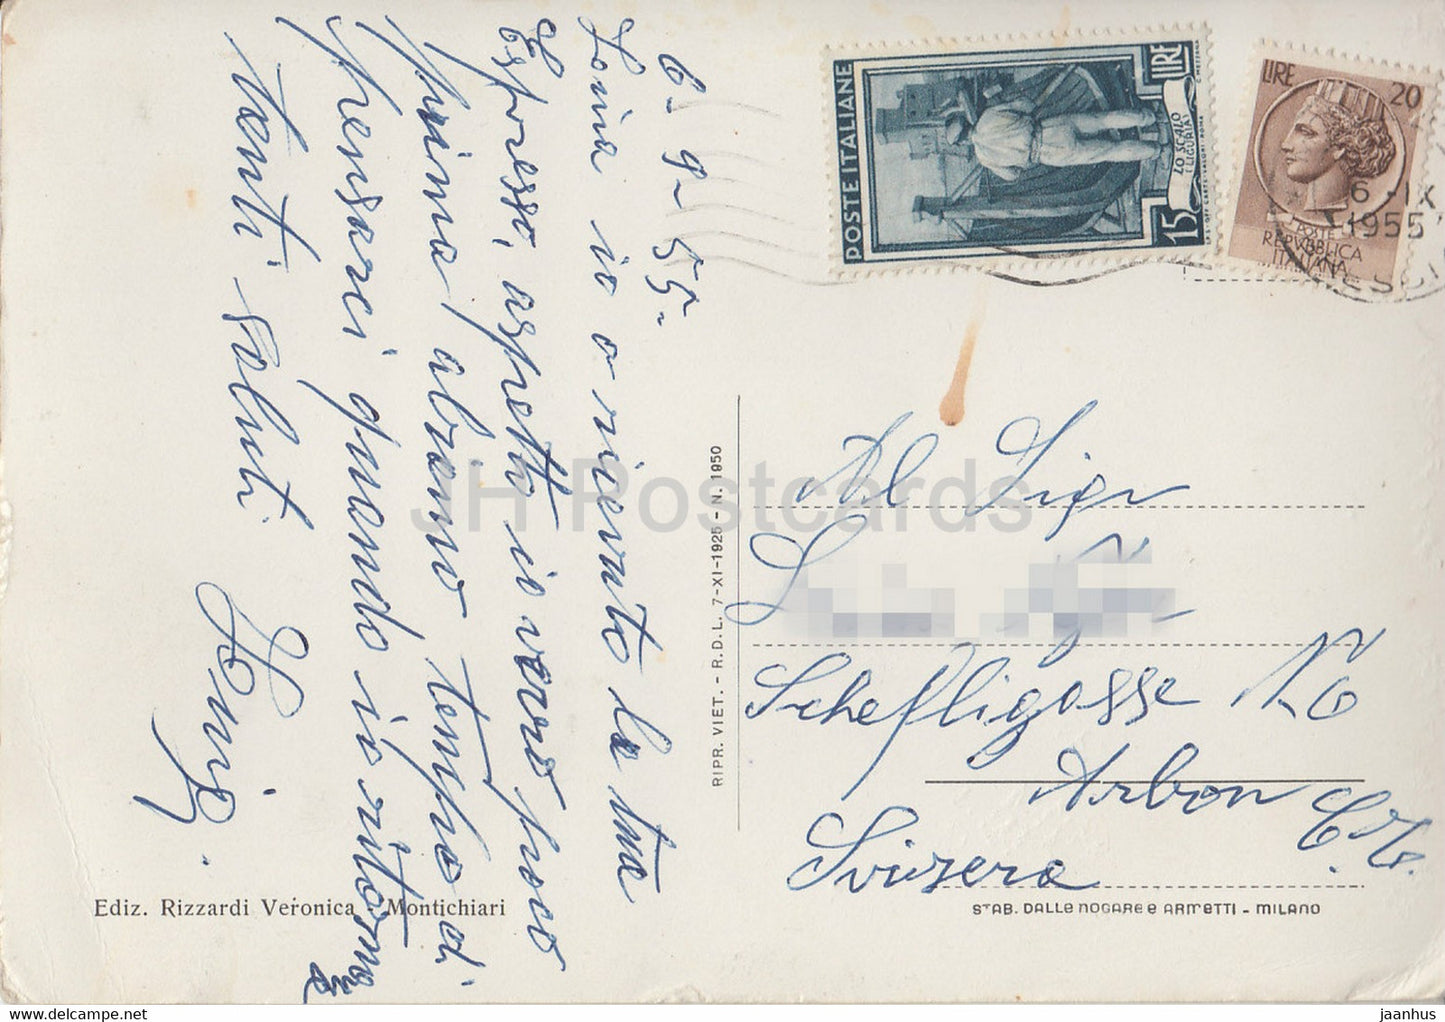 6-9-55-
Lonia io o ricevuto la tua
Espresso, aspetto io verro poco
prima abiamo tempo di
pensarci quando io ritorno
tanti saluti
POSTE ITALIANE
LIRE
15
LO SCALO
(LIGURIA)
LIRE
20
POSTE
REPVBBLICA
ITALIANA
6 -IX
1955
Al Sigr
Schefligasse No
Arbon
Svizera
RIPR. VIET. - R.D.L. 7-XI-1925 - N. 1950
Ediz. Rizzardi Veronica - Montichiari
STAB. DALLE NOGARE E ARMETTI - MILANO
JH Postcards
jaanhus @ delcampe.net